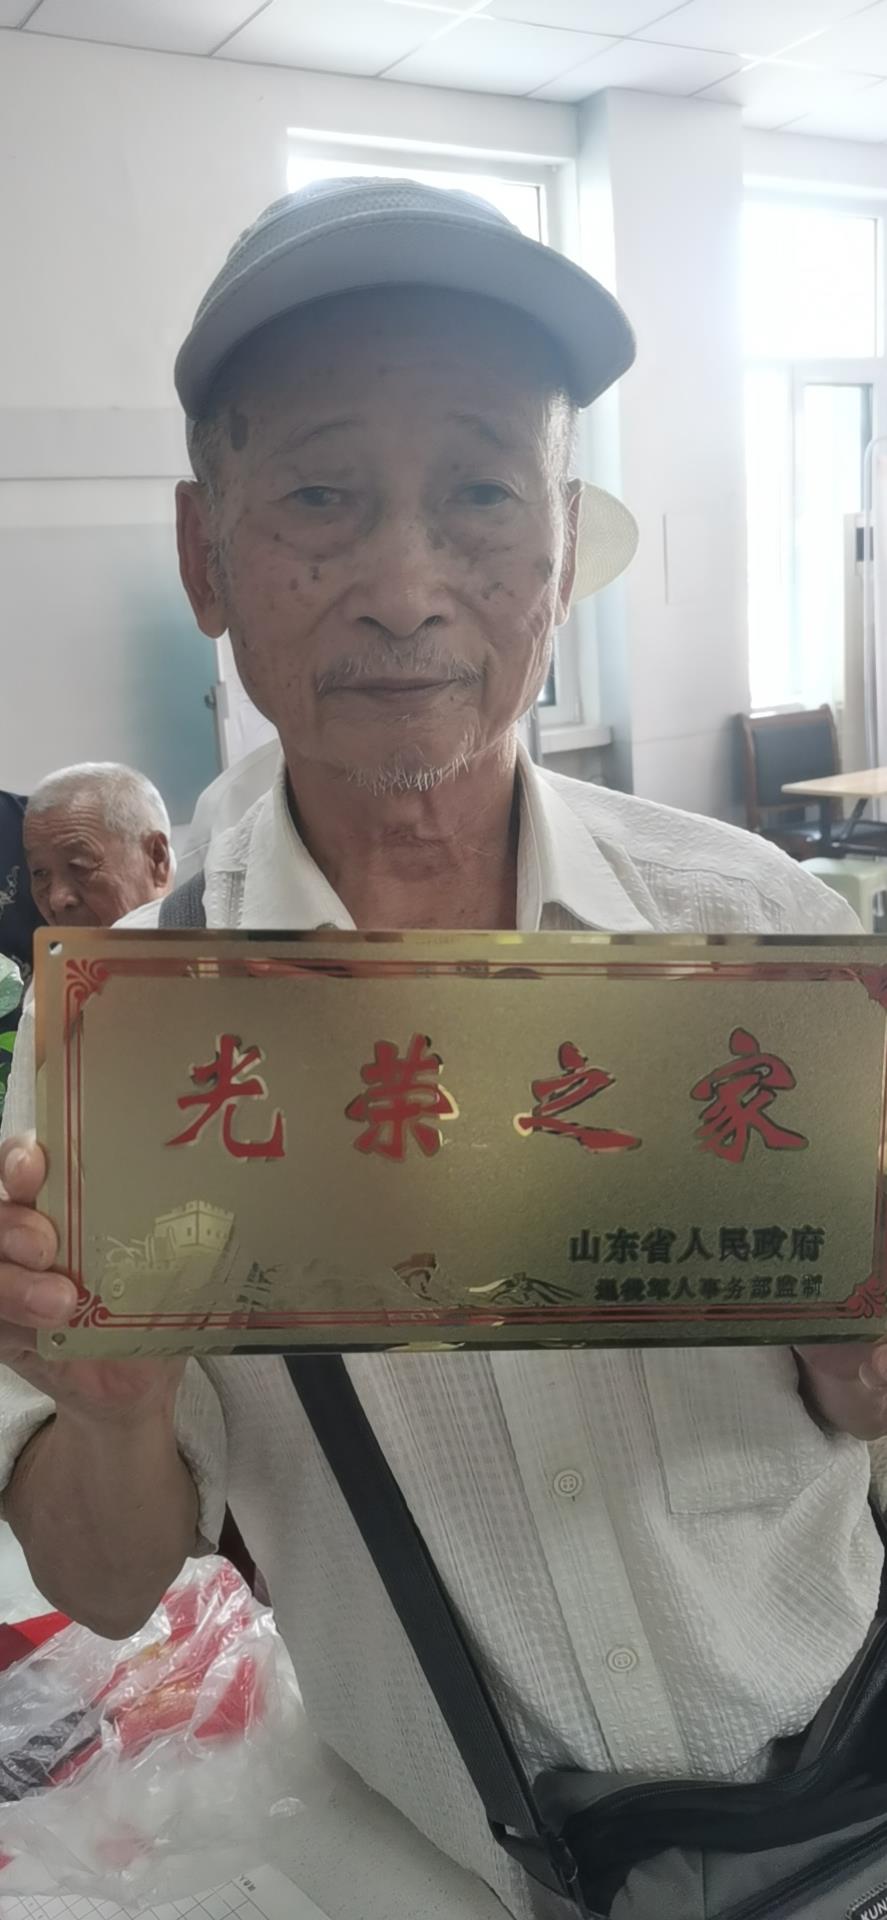 光荣之家
山东省人民政府
退役军人事务部监制
KUN